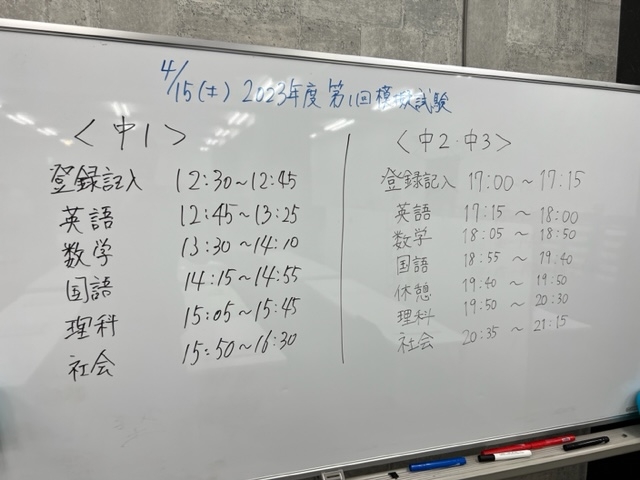 4/15(土) 2023年度 第1回模擬試験
<中1>
登録記入 12:30~12:45
英語 12:45~13:25
数学 13:30~14:10
国語 14:15~14:55
理科 15:05~15:45
社会 15:50~16:30
<中2・中3>
登録記入 17:00~17:15
英語 17:15~18:00
数学 18:05~18:50
国語 18:55~19:40
休憩 19:40~19:50
理科 19:50~20:30
社会 20:35~21:15